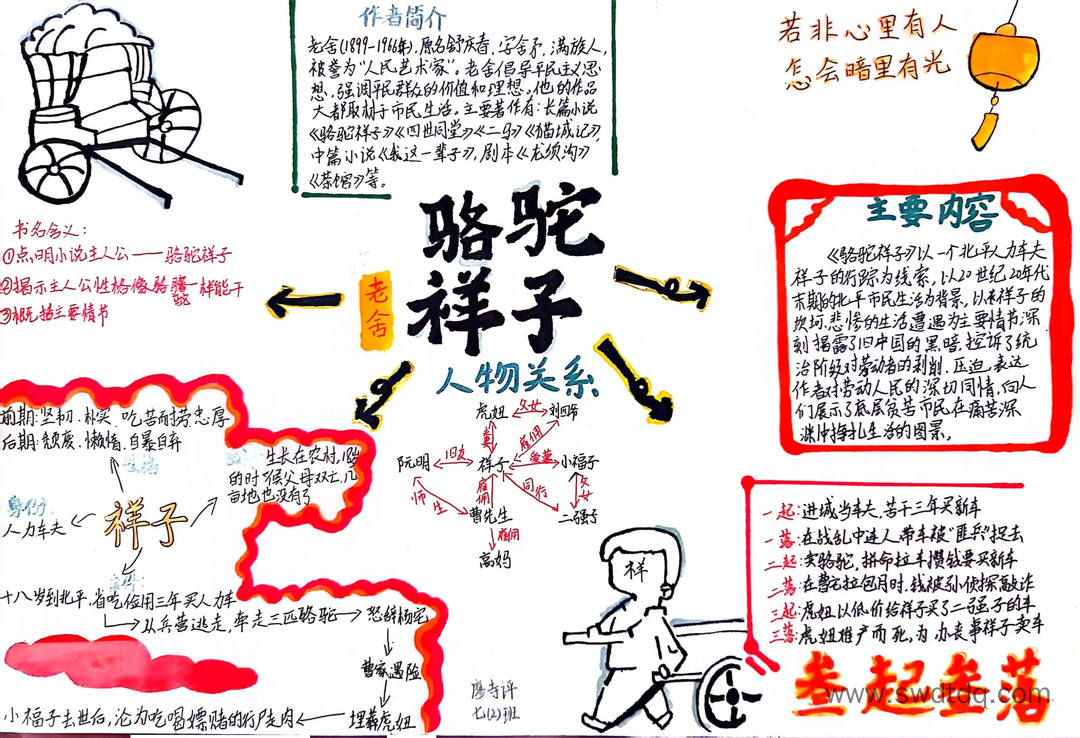 作者简介
老舍(1899-1966年),原名舒庆春,字舍予,满族人,
被誉为"人民艺术家"。老舍倡导平民主义思
想,强调平民群众的价值和理想。他的作品
大都取材于市民生活。主要著作有:长篇小说
《骆驼祥子》《四世同堂》《二马》《猫城记》,
中篇小说《我这一辈子》,剧本《龙须沟》
《茶馆》等。
若非心里有人
怎会暗里有光
骆驼
祥子
老舍
书名含义:
①点明小说主人公——骆驼祥子
②揭示主人公性格像骆驼一样能干
③概括主要情节
主要内容
《骆驼祥子》以一个北平人力车夫
祥子的行踪为线索,以20世纪20年代
末期的北平市民生活为背景,以祥子的
坎坷,悲惨的生活遭遇为主要情节,深
刻揭露了旧中国的黑暗,控诉了统
治阶级对劳动者的剥削、压迫,表达
作者对劳动人民的深切同情,向人
们展示了底层贫苦市民在痛苦深
渊中挣扎生活的图景。
人物关系
虎妞
父女
刘四爷
雇佣
阮明
旧友
祥子
小福子
师生
雇佣
同行
父女
曹先生
二强子
雇佣
高妈
前期:坚韧、朴实、吃苦耐劳、忠厚
后期:颓废、懒惰、自暴自弃
性格
生长在农村,18岁
的时候父母双亡,几
亩地也没有了
身份
人力车夫
祥子
十八岁到北平,省吃俭用三年买人力车
从兵营逃走,牵走三匹骆驼
怒辞杨宅
曹家遇险
埋葬虎妞
小福子去世后,沦为吃喝嫖赌的行尸走肉
祥
一起:进城当车夫,苦干三年买新车
一落:在战乱中连人带车被"匪兵"捉去
二起:卖骆驼,拼命拉车攒钱要买新车
二落:在曹宅拉包月时,钱被孙侦探敲诈
三起:虎妞以低价给祥子买了二强子的车
三落:虎妞难产而死,为办丧事祥子卖车
叁起叁落
七(2)班
www.swdtdq.com